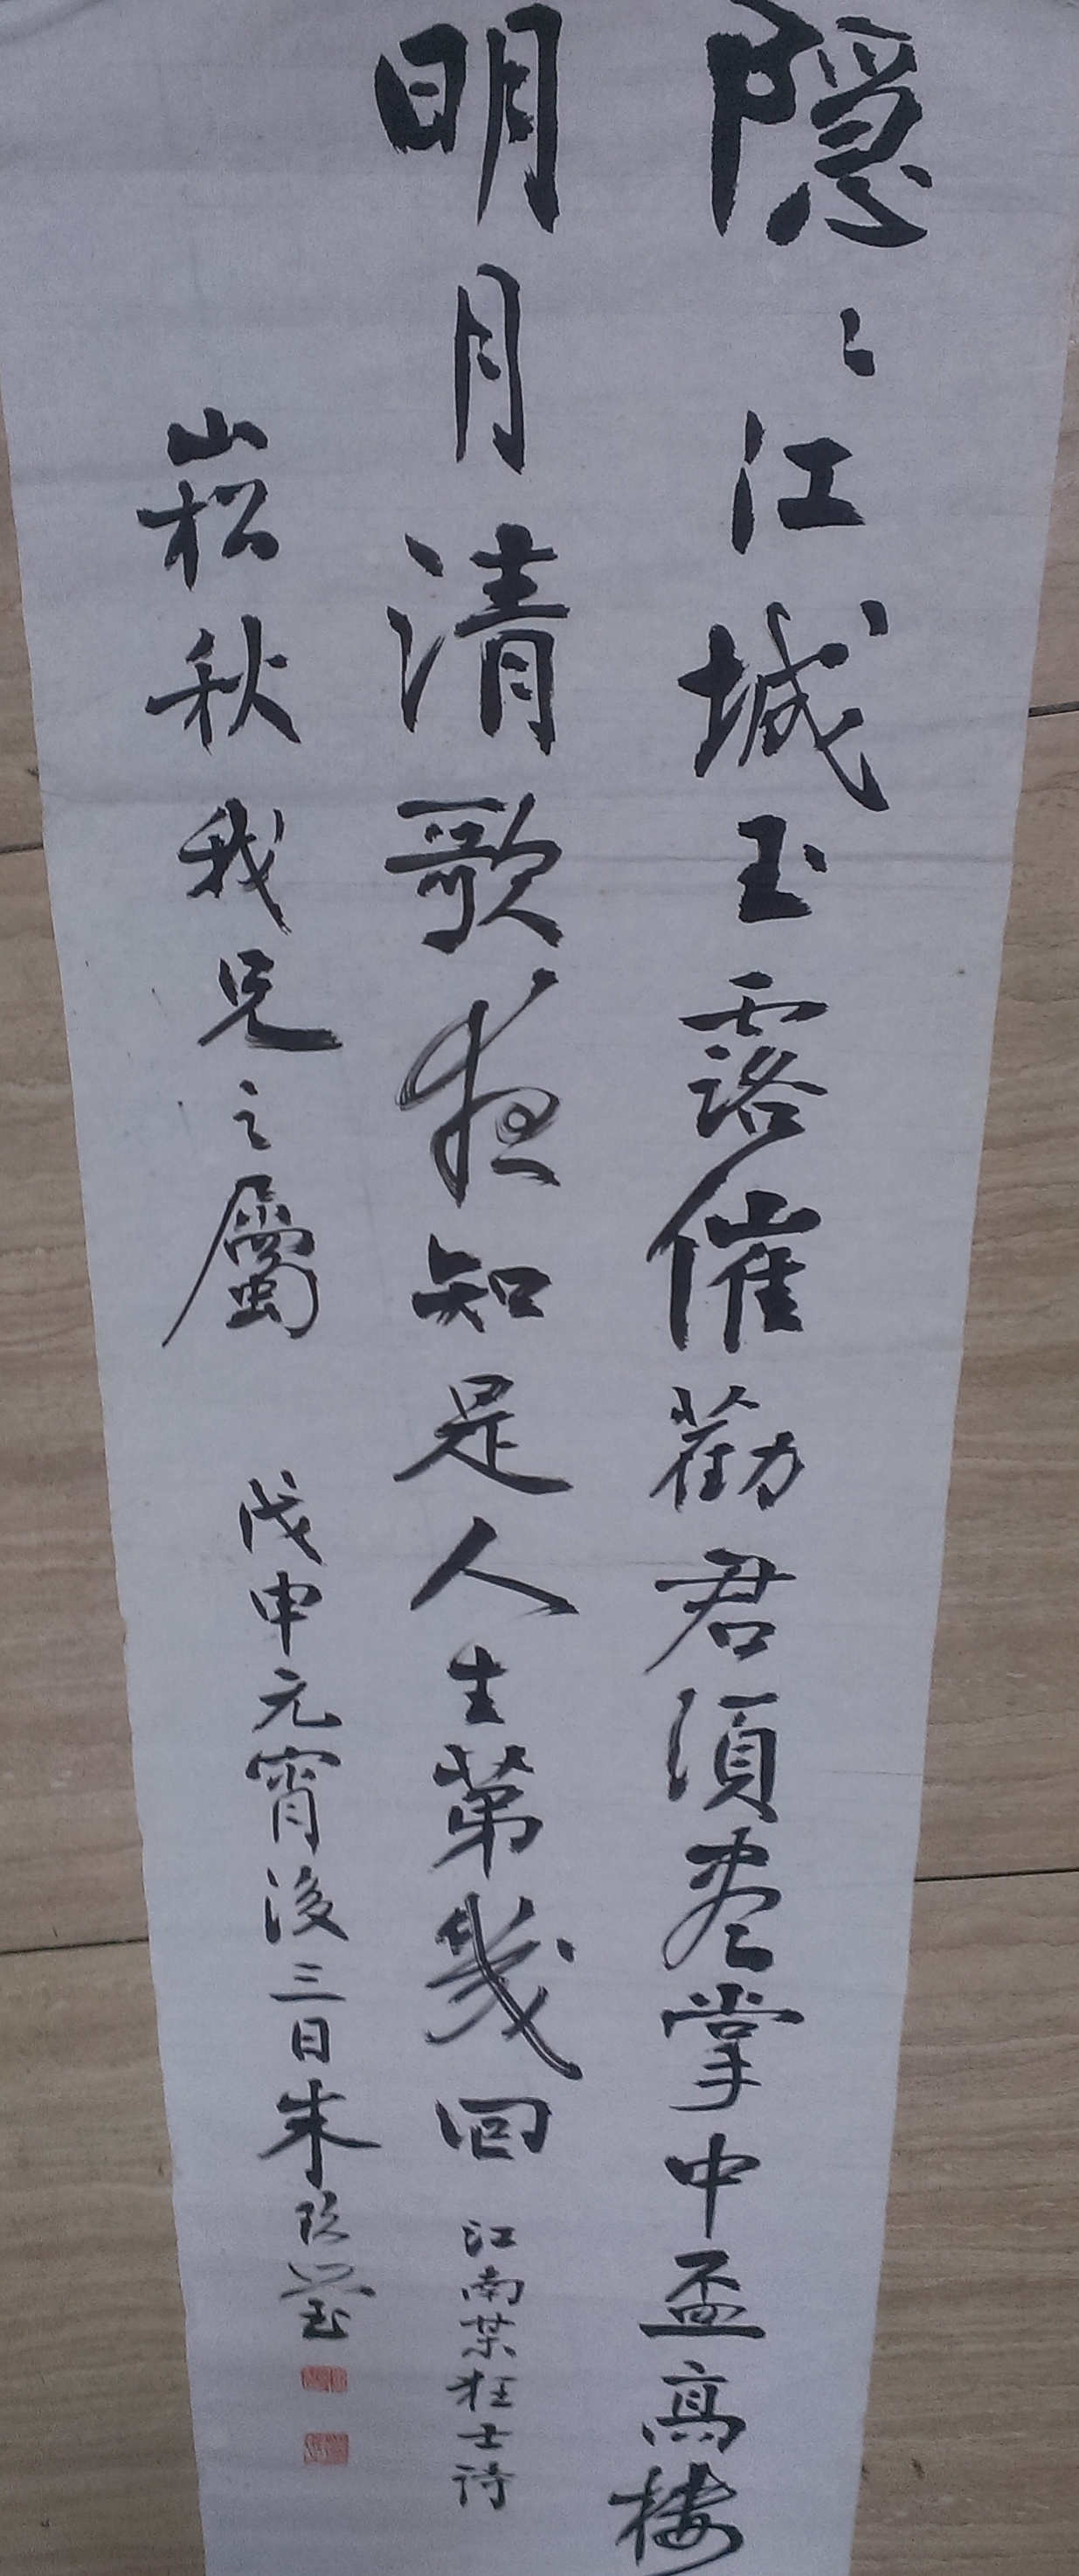 隱〻江城玉露催勸君須盡掌中盃高樓
明月清歌夜知是人生第幾回
江南某狂士詩
崧秋我兄之屬
戊申元宵後三日朱玖瑩